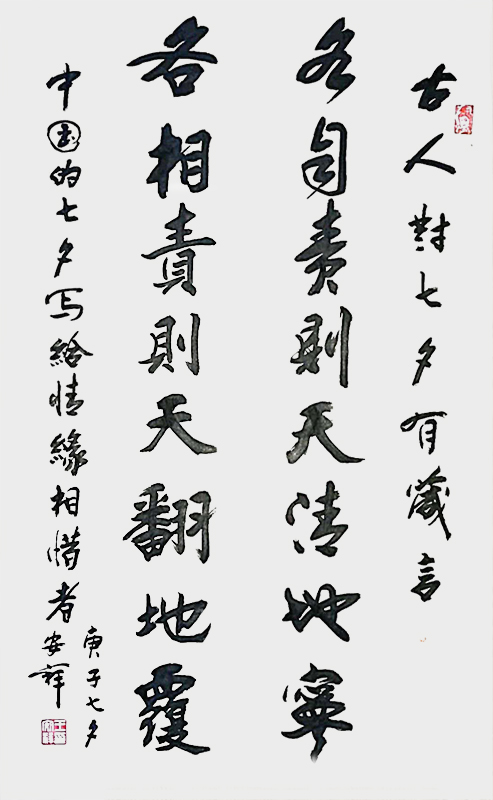 古人對七夕有箴言
各自责則天清地寧
各相責則天翻地覆
中国的七夕写給情緣相惜者
庚子七夕
安祥